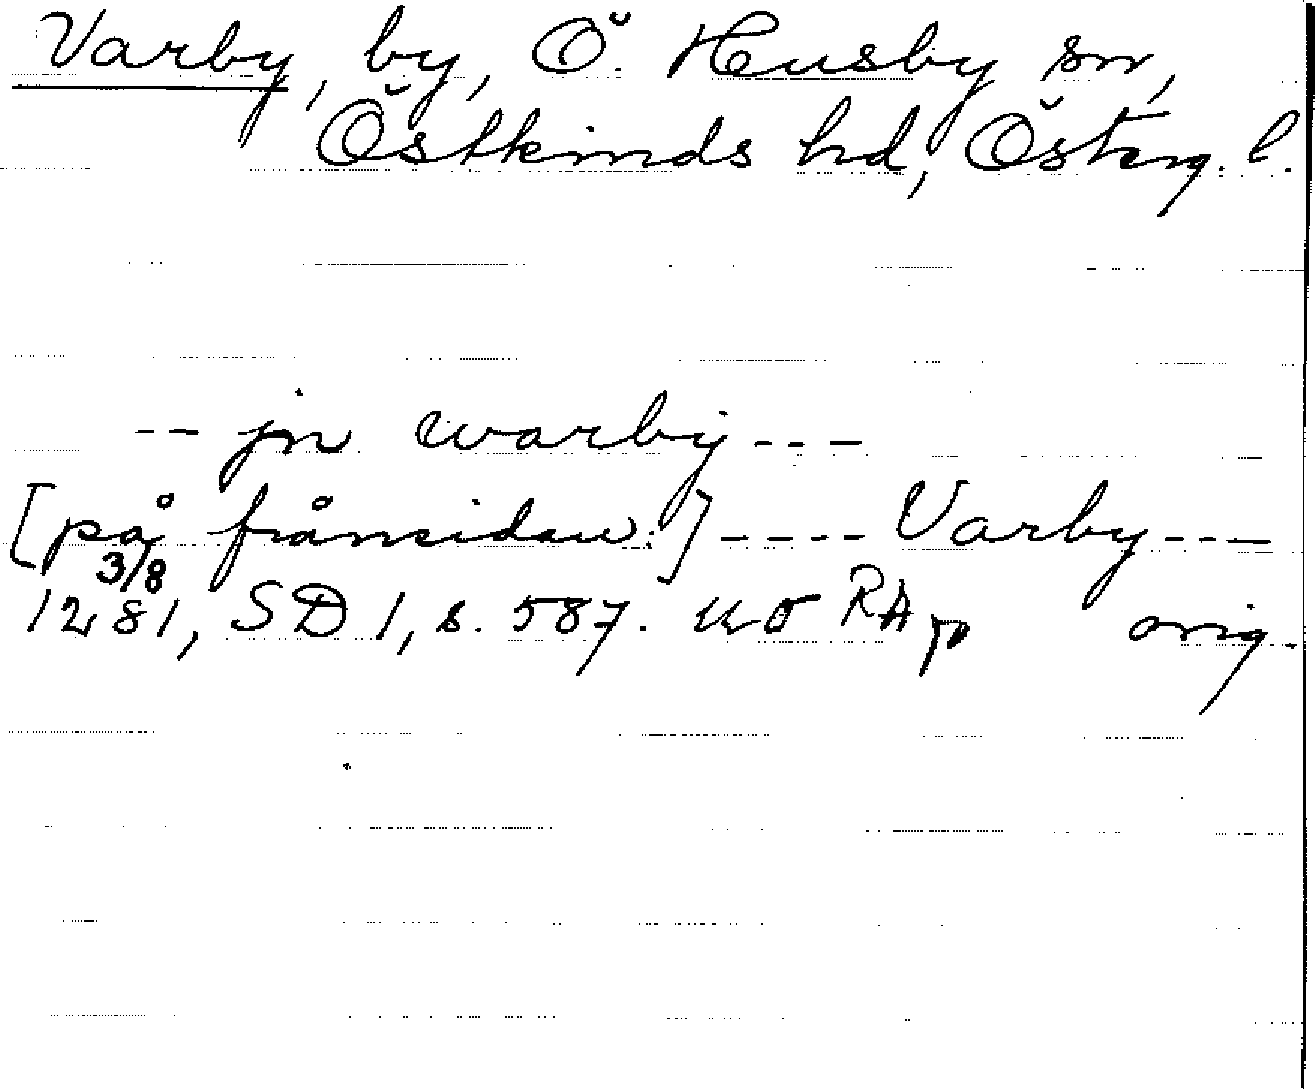 Varby, by, Ö. Husby sn,
Östkinds hd, Österg. l.
-- jn warby ---
[på frånsidan:] ---- Varby ---
3/8
1281, SD 1, s. 587. RAp orig.